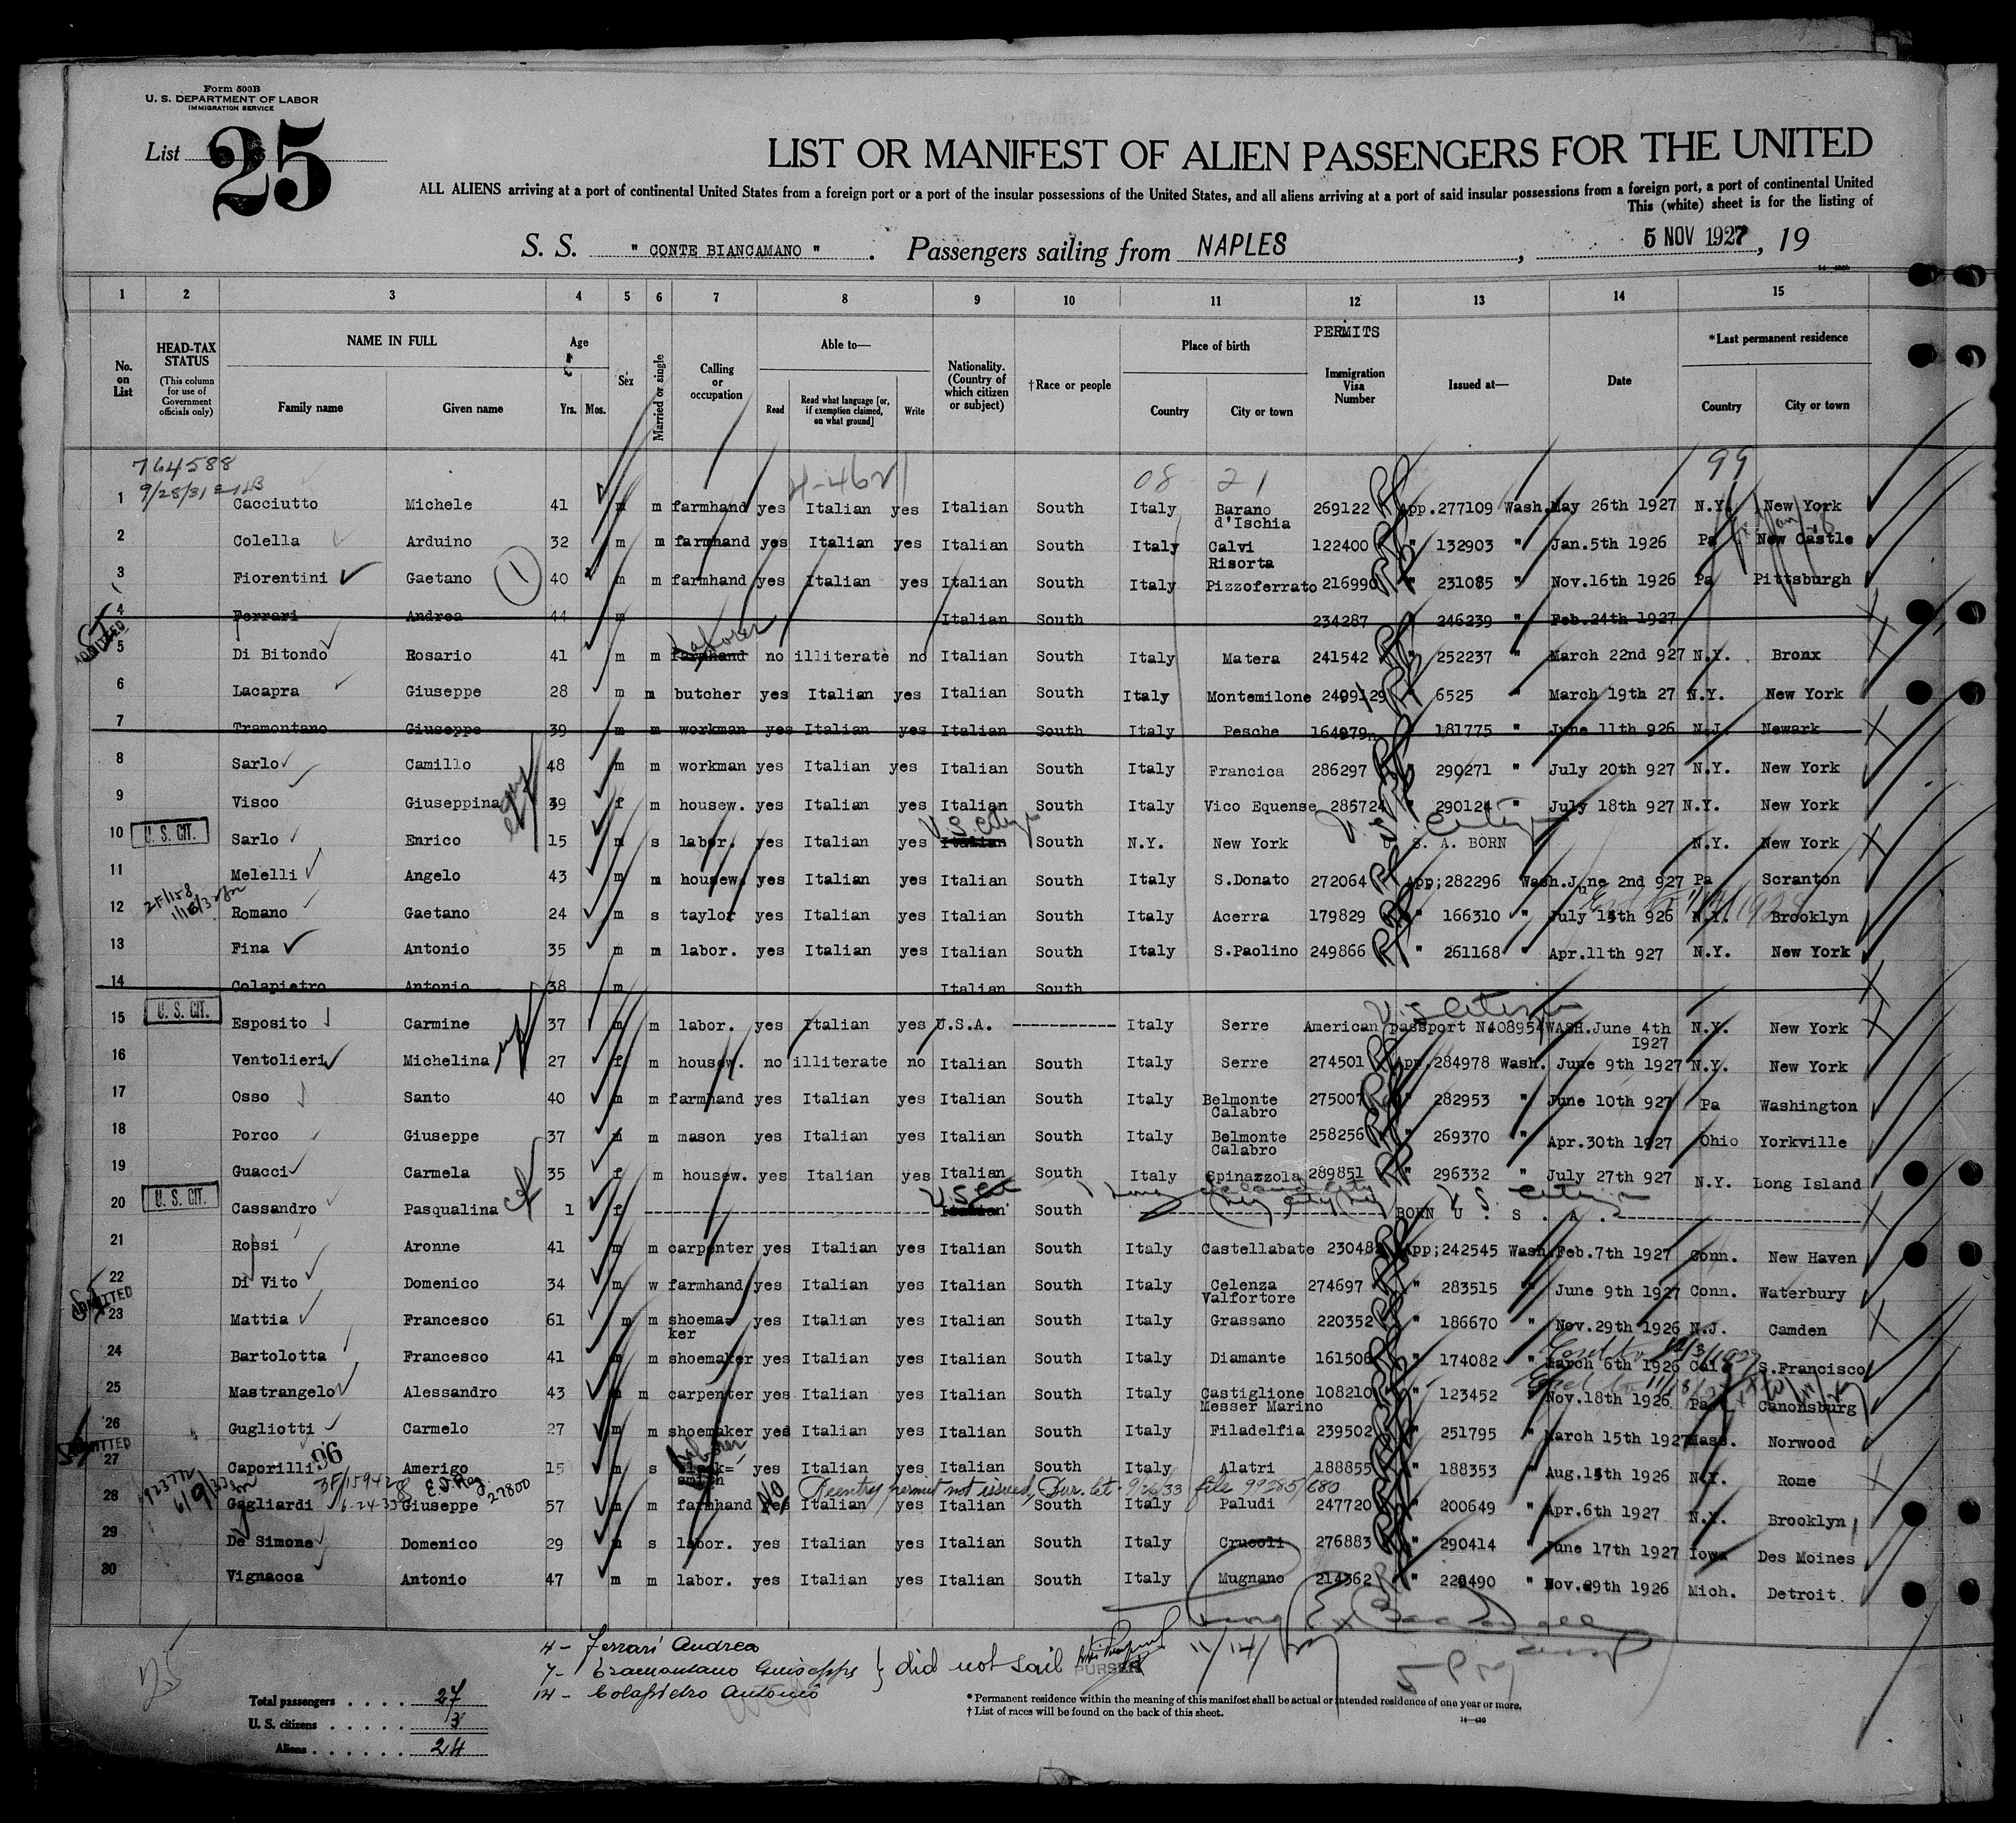 Form 500B
U. S. DEPARTMENT OF LABOR
IMMIGRATION SERVICE
List 25
LIST OR MANIFEST OF ALIEN PASSENGERS FOR THE UNITED
ALL ALIENS arriving at a port of continental United States from a foreign port or a port of the insular possessions of the United States, and all aliens arriving at a port of said insular possessions from a foreign port, a port of continental United
This (white) sheet is for the listing of
S. S. " CONTE BIANCAMANO " . Passengers sailing from NAPLES , 5 NOV 1927, 19
1 2 3 4 5 6 7 8 9 10 11 12 13 14 15
No. on List
HEAD-TAX STATUS (This column for use of Government officials only)
NAME IN FULL
Family name Given name
Age Yrs. Mos.
Sex
Married or single
Calling or occupation
Able to— Read Read what language [or, if exemption claimed, on what ground] Write
Nationality. (Country of which citizen or subject)
†Race or people
Place of birth Country City or town
PERMITS Immigration Visa Number
Issued at—
Date
*Last permanent residence Country City or town
764588
9/28/31
08 21 99
1 Cacciutto Michele 41 m m farmhand yes Italian yes Italian South Italy Barano d'Ischia 269122 App.277109 Wash. May 26th 1927 N.Y. New York
2 Colella Arduino 32 m m farmhand yes Italian yes Italian South Italy Calvi Risorta 122400 " 132903 " Jan.5th 1926 Pa New Castle
3 Fiorentini Gaetano 1 40 m m farmhand yes Italian yes Italian South Italy Pizzoferrato 216990 " 231085 " Nov.16th 1926 Pa Pittsburgh
4 Ferrari Andrea 44 m Italian South 234287 " 246239 " Feb.24th 1927
ADMITTED
Laborer
5 Di Bitondo Rosario 41 m m farmhand no illiterate no Italian South Italy Matera 241542 " 252237 " March 22nd 927 N.Y. Bronx
6 Lacapra Giuseppe 28 m m butcher yes Italian yes Italian South Italy Montemilone 249929 " 6525 " March 19th 27 N.Y. New York
7 Tramontano Giuseppe 39 m m workman yes Italian yes Italian South Italy Pesche 164979 " 181775 " June 11th 926 N.J. Newark
8 Sarlo Camillo 48 m m workman yes Italian yes Italian South Italy Francica 286297 " 290271 " July 20th 927 N.Y. New York
9 Visco Giuseppina 39 f m housew. yes Italian yes Italian South Italy Vico Equense 285724 " 290124 " July 18th 927 N.Y. New York
U.S. Citizen U.S. Citizen
10 U. S. CIT. Sarlo Enrico 15 m s labor. yes Italian yes Italian South N.Y. New York U. S. A. BORN N.Y. New York
11 Melelli Angelo 43 m m housew. yes Italian yes Italian South Italy S.Donato 272064 App;282296 Wash. June 2nd 927 Pa Scranton
12 Romano Gaetano 24 m s taylor yes Italian yes Italian South Italy Acerra 179829 " 166310 " July 15th 926 N.Y. Brooklyn
13 Fina Antonio 35 m m labor. yes Italian yes Italian South Italy S.Paolino 249866 " 261168 " Apr.11th 927 N.Y. New York
14 Colapietro Antonio 38 m Italian South
U.S. Citizen
15 U. S. CIT. Esposito Carmine 37 m m labor. yes Italian yes U.S.A. ------------ Italy Serre American passport N408954 WASH. June 4th 1927 N.Y. New York
16 Ventolieri Michelina 27 f m housew. no illiterate no Italian South Italy Serre 274501 App.284978 Wash. June 9th 1927 N.Y. New York
17 Osso Santo 40 m m farmhand yes Italian yes Italian South Italy Belmonte Calabro 275007 " 282953 " June 10th 927 Pa Washington
18 Porco Giuseppe 37 m m mason yes Italian yes Italian South Italy Belmonte Calabro 258256 " 269370 " Apr.30th 1927 Ohio Yorkville
19 Guacci Carmela 35 f m housew. yes Italian yes Italian South Italy Spinazzola 289851 " 296332 " July 27th 927 N.Y. Long Island
U.S. Cit Long Island City U.S. Citizen
20 U. S. CIT. Cassandro Pasqualina 1 f ---------- Italian South ---------- BORN U . S . A . ----------
21 Rossi Aronne 41 m m carpenter yes Italian yes Italian South Italy Castellabate 23048 App;242545 Wash. Feb.7th 1927 Conn. New Haven
22 Di Vito Domenico 34 m w farmhand yes Italian yes Italian South Italy Celenza Valfortore 274697 " 283515 " June 9th 1927 Conn. Waterbury
ADMITTED
23 Mattia Francesco 61 m m shoemaker yes Italian yes Italian South Italy Grassano 220352 " 186670 " Nov.29th 1926 N.J. Camden
24 Bartolotta Francesco 41 m m shoemaker yes Italian yes Italian South Italy Diamante 161506 " 174082 " March 6th 1926 Cal S.Francisco
25 Mastrangelo Alessandro 43 m m carpenter yes Italian yes Italian South Italy Castiglione Messer Marino 108210 " 123452 " Nov.18th 1926 Pa. Canonsburg
26 Gugliotti Carmelo 27 m m shoemaker yes Italian yes Italian South Italy Filadelfia 239502 " 251795 " March 15th 1927 Mass. Norwood
ADMITTED
27 Caporilli 96 Amerigo 15 m s black=smith yes Italian yes Italian South Italy Alatri 188855 " 188353 " Aug.15th 1926 N.Y. Rome
Reentry permit not issued, Bur. let 9/26/33 file 99285/680
28 Gagliardi 6-24-33 Giuseppe 27800 57 m m farmhand No yes Italian yes Italian South Italy Paludi 247720 " 200649 " Apr.6th 1927 N.Y. Brooklyn
29 De Simone Domenico 29 m s labor. yes Italian yes Italian South Italy Crucoli 276883 " 290414 " June 17th 1927 Iowa Des Moines
30 Vignacca Antonio 47 m m labor. yes Italian yes Italian South Italy Mugnano 214362 " 229490 " Nov.29th 1926 Mich. Detroit
4- Ferrari Andrea
7- Tramontano Giuseppe } did not sail PURSER 11/14/27
14- Colapietro Antonio
25
Total passengers . . . . 27
U. S. citizens . . . . . 3
Aliens . . . . . . 24
* Permanent residence within the meaning of this manifest shall be actual or intended residence of one year or more.
† List of races will be found on the back of this sheet.